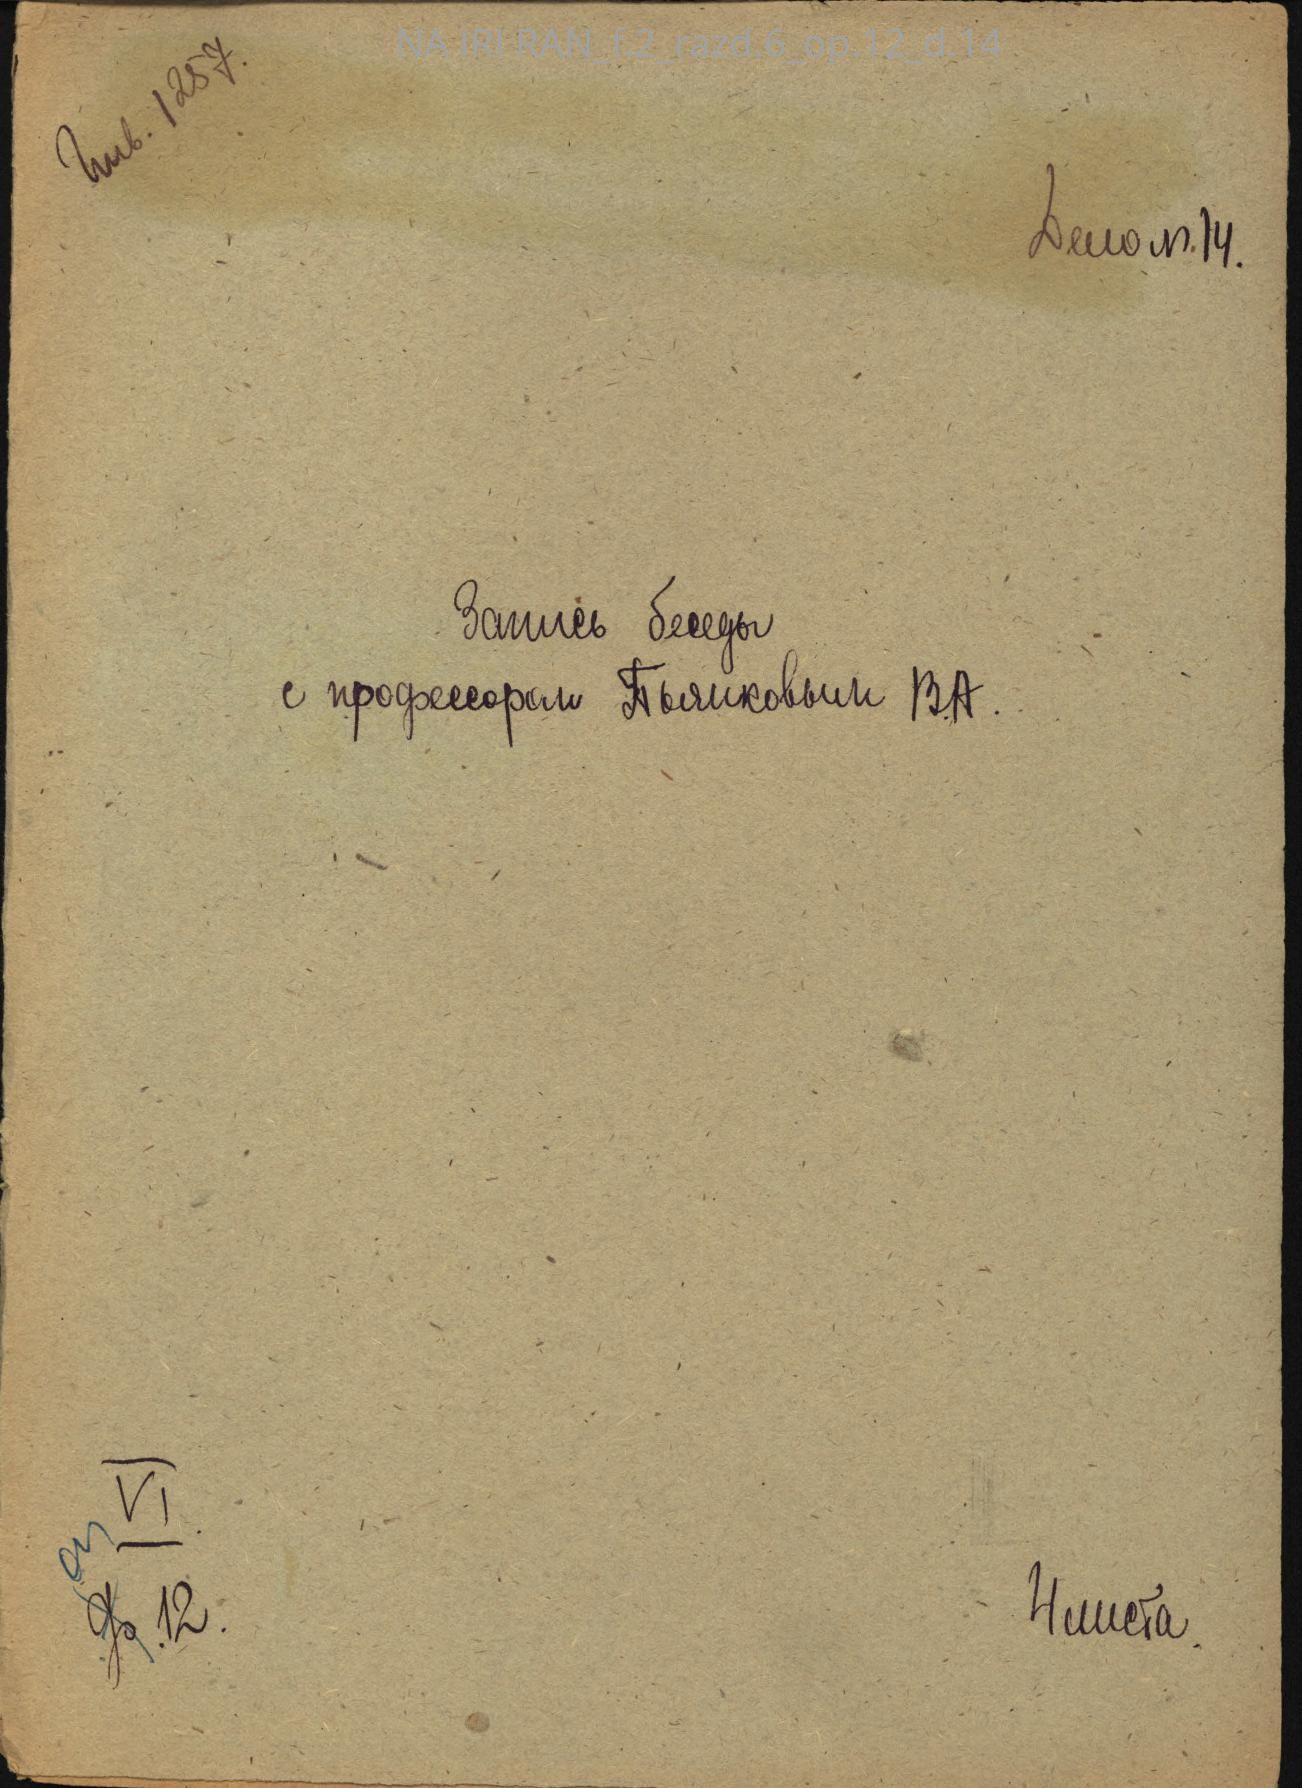 NA IRI RAN_f.2_razd.6_op.12_d.14
Инв. 1257.
Дело № 14.
Запись беседы
с профессором Пьянковым В.А.
VI
оп
Ф. 12.
4 листа.